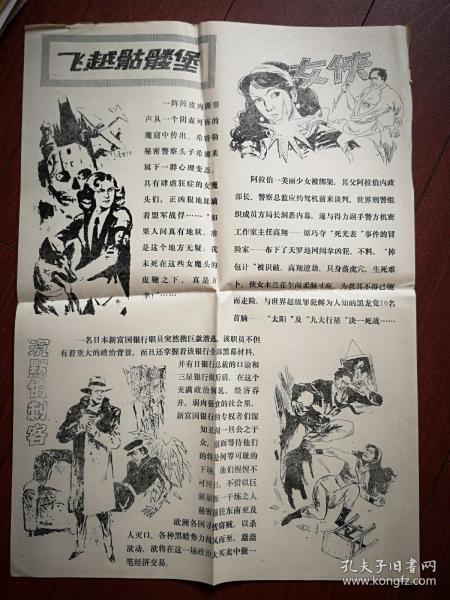 飞越骷髅堡
一阵阵皮肉撕裂
声从一个阴森可怖的
魔窟中传出，希特勒
秘密警察头子希姆莱
属下一群心理变态、
具有肆虐狂症的女魔
头们，正凶狠地蹂躏
着盟军战俘……“如
果人间真有地狱，准
是这个地方无疑。我
未死在这些女魔头的
皮鞭之下，真是万
幸！”……
女侠
阿拉伯一美丽少女被绑架，其父阿拉伯内政
部长、警察总监应约驾机前来谈判，世界刑警组
织成员方局长洞悉内幕，遂与得力副手警方机密
工作室主任高翔——原巧夺“死光表”事件的冒
险家——布下了天罗地网缉拿凶犯，不料，“掉
包计”被识破，高翔遭劫，只身落虎穴，生死难
卜。侠女木兰花乍闻柔肠寸断，为救其不得已挺
而走险，与世界超级罪犯鲜为人知的黑龙党10名
首脑——“太阳”及“九大行星”决一死战……
沉默的刺客
一名日本新富国银行职员突然携巨款潜逃，该职员不但
有着重大的政治背景，而且还掌握着该银行全部黑幕材料，
并有日银行总裁的口谕和
三星银行做后盾，在这个
充满政治倾轧、经济吞
并，弱肉强食的社会里，
新富国银行的专权者们深
知丑闻一旦公之于
众，前面等待他们
的将是何等可耻的
下场，他们惶惶不
可终日，不惜以巨
额雇佣一干练之人
秘密前往东南亚及
欧洲各国寻找窃贼，以杀
人灭口。各种黑暗势力闻风而至，蠢蠢
欲动，欲将在这一场政治大买卖中做一
笔经济交易。
孔夫子旧书网
kongfz.com